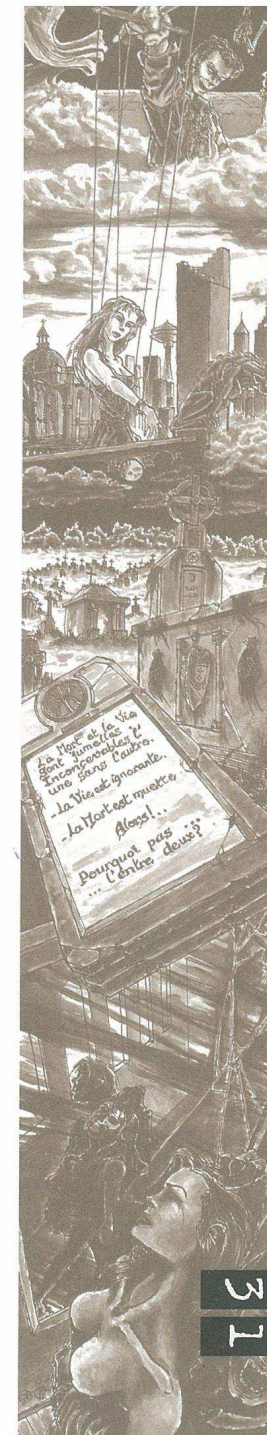 La Mort et la Vie
sont jumelles
inconcevables l'
une sans l'autre.
-La Vie est ignorante.
-La Mort est muette
Alors!...
Pourquoi pas
... l'entre deux?
31